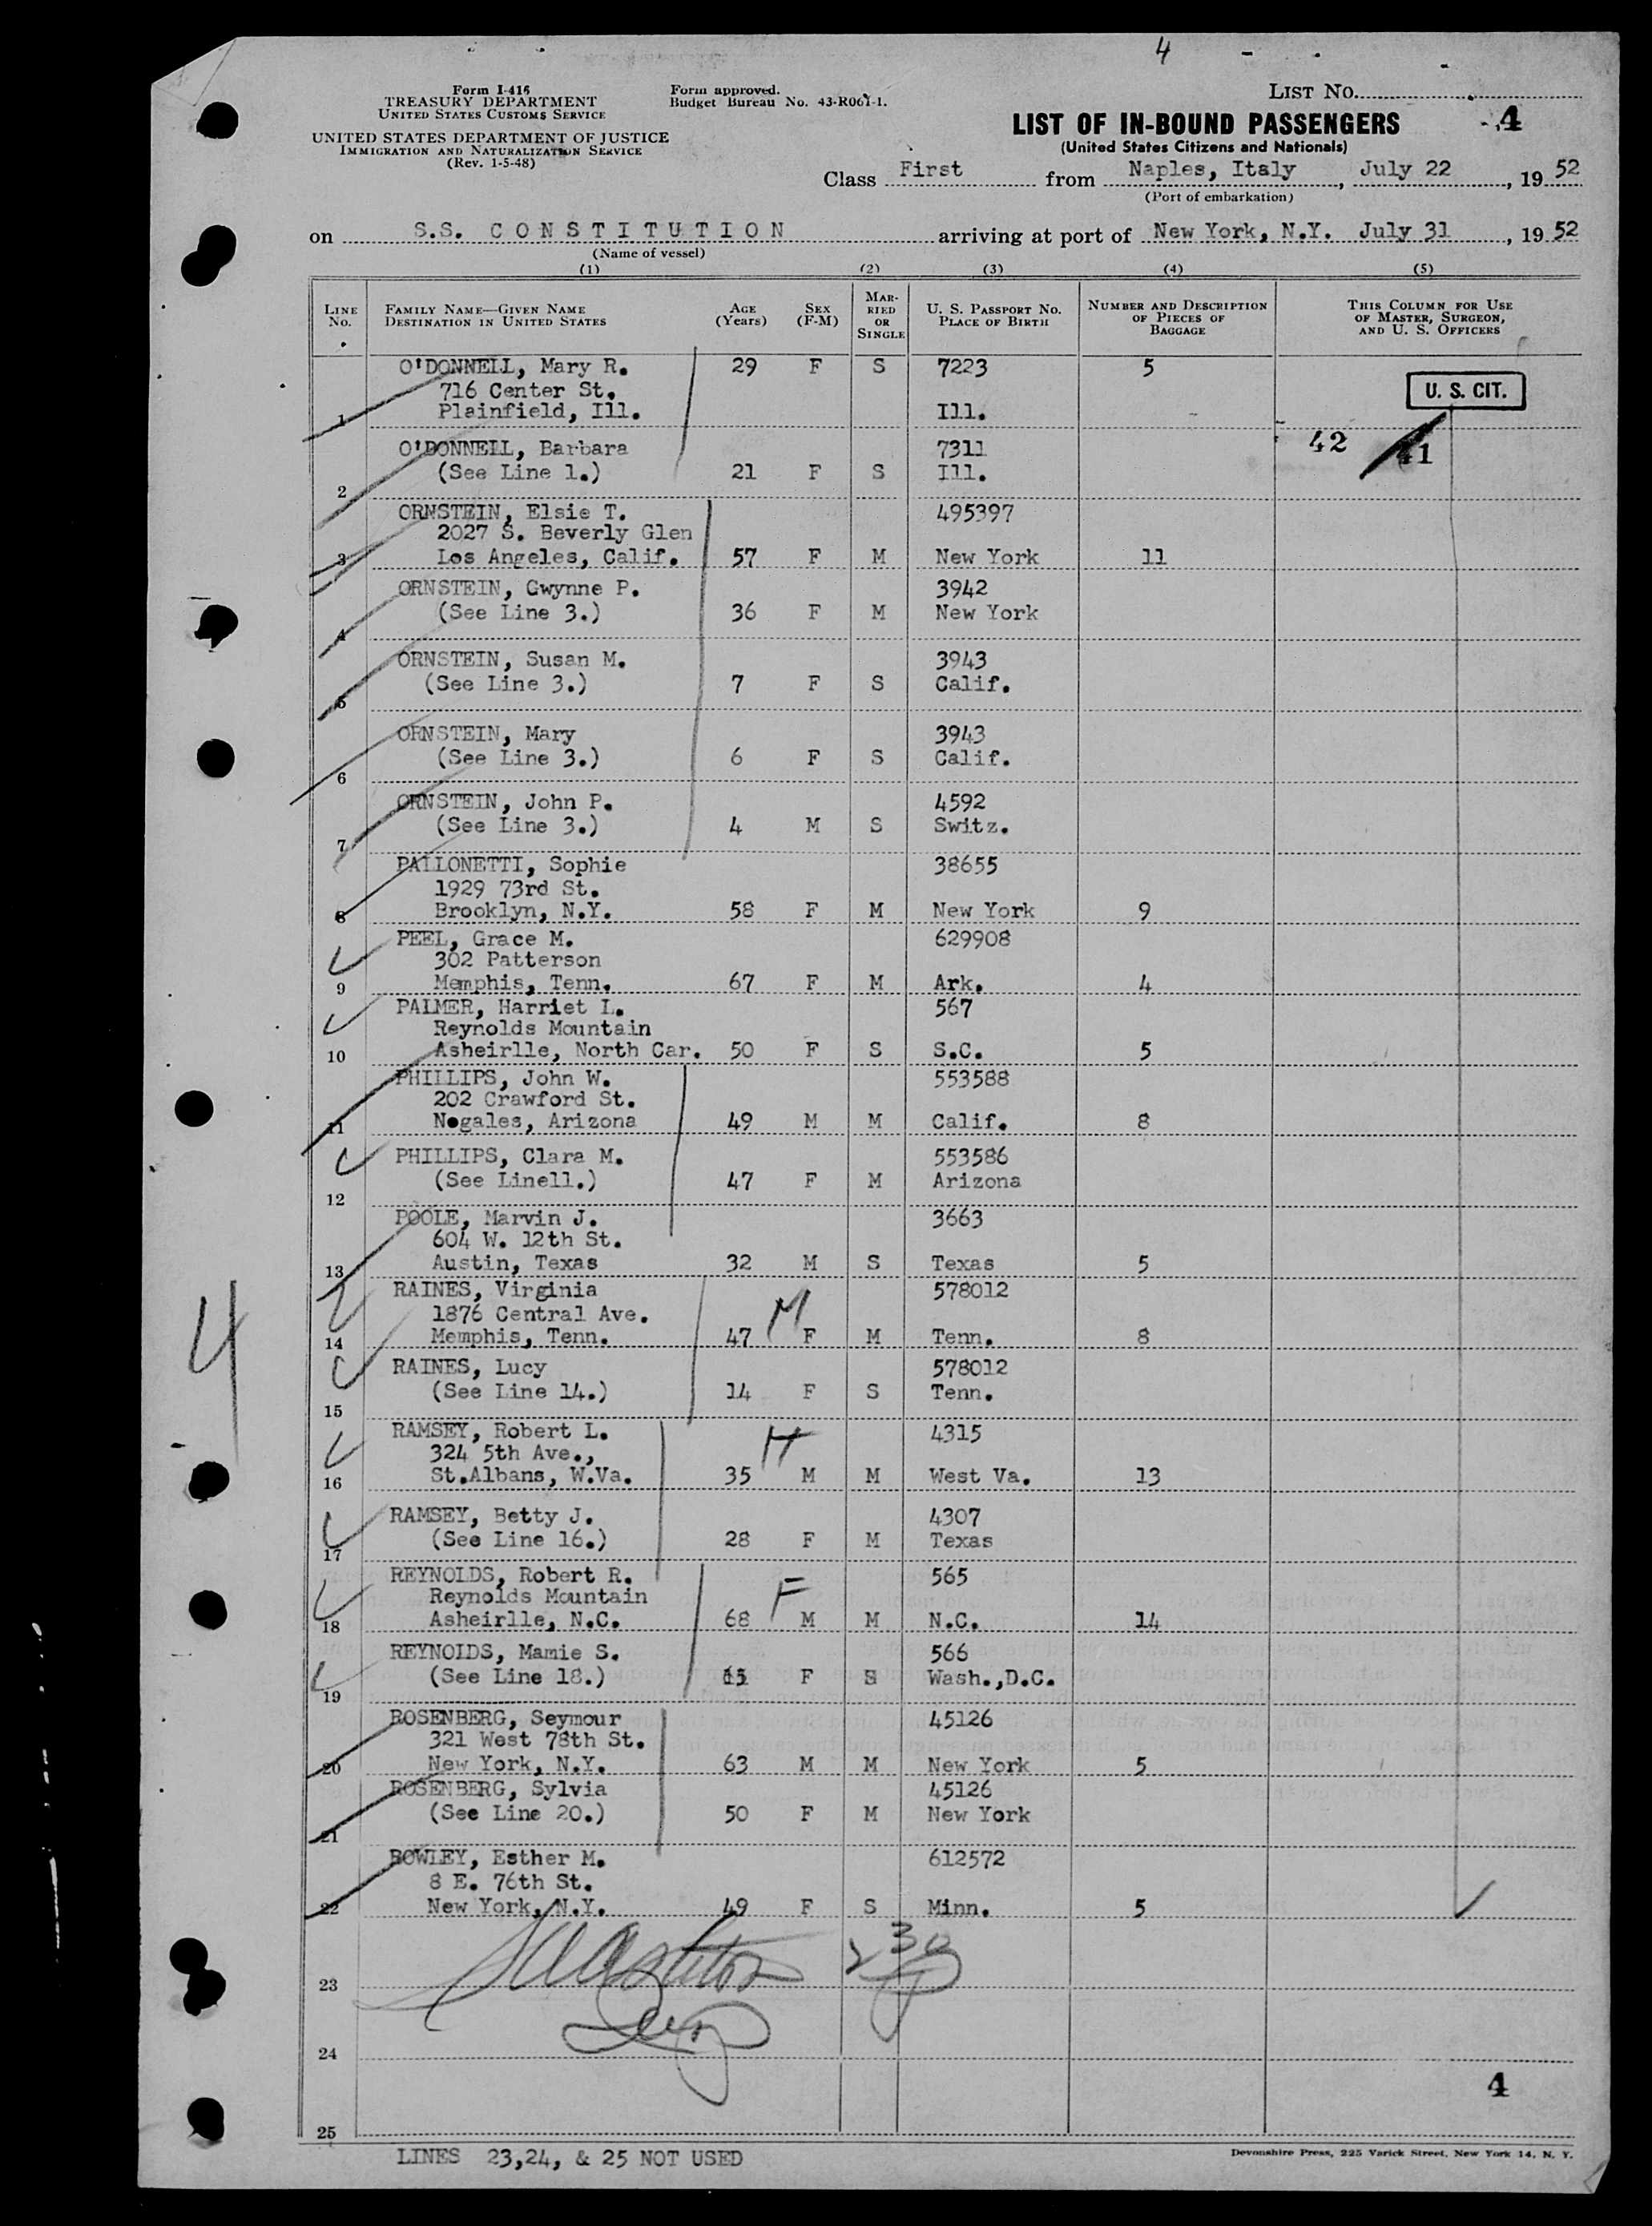 4
Form I-416
TREASURY DEPARTMENT
UNITED STATES CUSTOMS SERVICE
UNITED STATES DEPARTMENT OF JUSTICE
IMMIGRATION AND NATURALIZATION SERVICE
(Rev. 1-5-48)
Form approved.
Budget Bureau No. 43-R061-1.
LIST No.
4
LIST OF IN-BOUND PASSENGERS
(United States Citizens and Nationals)
Class First from Naples, Italy, July 22, 1952
(Port of embarkation)
on S.S. CONSTITUTION arriving at port of New York, N.Y. July 31, 1952
(Name of vessel)
(1) (2) (3) (4) (5)
LINE No. FAMILY NAME—GIVEN NAME DESTINATION IN UNITED STATES AGE (Years) SEX (F-M) MARRIED OR SINGLE U. S. PASSPORT NO. PLACE OF BIRTH NUMBER AND DESCRIPTION OF PIECES OF BAGGAGE THIS COLUMN FOR USE OF MASTER, SURGEON, AND U. S. OFFICERS
O'DONNELL, Mary R. 29 F S 7223 5
716 Center St. U. S. CIT.
1 Plainfield, Ill. Ill.
O'DONNELL, Barbara 7311 42 41
(See Line 1.) 21 F S Ill.
2
ORNSTEIN, Elsie T. 495397
2027 S. Beverly Glen
3 Los Angeles, Calif. 57 F M New York 11
ORNSTEIN, Gwynne P. 3942
(See Line 3.) 36 F M New York
4
ORNSTEIN, Susan M. 3943
(See Line 3.) 7 F S Calif.
5
ORNSTEIN, Mary 3943
(See Line 3.) 6 F S Calif.
6
ORNSTEIN, John P. 4592
(See Line 3.) 4 M S Switz.
7
PALLONETTI, Sophie 38655
1929 73rd St.
8 Brooklyn, N.Y. 58 F M New York 9
PEEL, Grace M. 629908
302 Patterson
9 Memphis, Tenn. 67 F M Ark. 4
PALMER, Harriet L. 567
Reynolds Mountain
10 Asheirlle, North Car. 50 F S S.C. 5
PHILLIPS, John W. 553588
202 Crawford St.
11 Nogales, Arizona 49 M M Calif. 8
PHILLIPS, Clara M. 553586
(See Line11.) 47 F M Arizona
12
POOLE, Marvin J. 3663
604 W. 12th St.
13 Austin, Texas 32 M S Texas 5
RAINES, Virginia 578012
1876 Central Ave. M
14 Memphis, Tenn. 47 F M Tenn. 8
RAINES, Lucy 578012
(See Line 14.) 14 F S Tenn.
15
RAMSEY, Robert L. 4315
324 5th Ave., H
16 St.Albans, W.Va. 35 M M West Va. 13
RAMSEY, Betty J. 4307
(See Line 16.) 28 F M Texas
17
REYNOLDS, Robert R. 565
Reynolds Mountain F
18 Asheirlle, N.C. 68 M M N.C. 14
REYNOLDS, Mamie S. 566
(See Line 18.) F S Wash.,D.C.
19
4
ROSENBERG, Seymour 45126
321 West 78th St.
20 New York, N.Y. 63 M M New York 5
ROSENBERG, Sylvia 45126
(See Line 20.) 50 F M New York
21
BOWLEY, Esther M. 612572
8 E. 76th St.
22 New York, N.Y. 49 F S Minn. 5
23
24
4
25
LINES 23,24, & 25 NOT USED
Devonshire Press, 225 Varick Street, New York 14, N. Y.